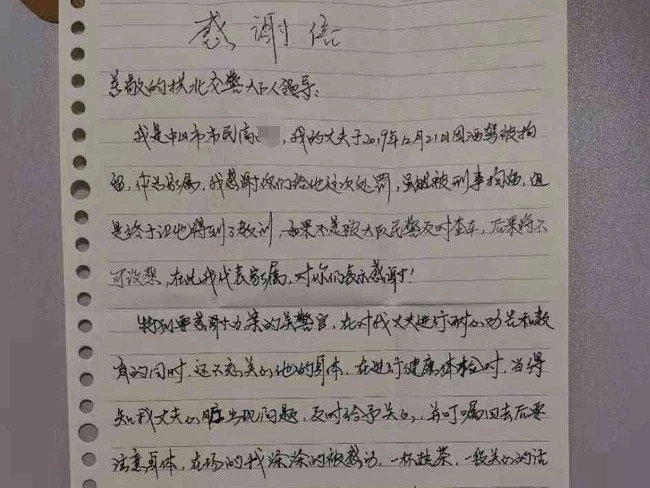 感谢信
尊敬的拱北交警大队领导:
我是中山市市民高，我的丈夫于2019年12月21日因酒驾被拘
留，作为家属，我感谢你们给他这次处罚，虽然被刑事拘留，但
是终于让他得到了教训，如果不是贵大队民警及时查车，后果将不
可设想，在此我代表家属，对你们表示感谢!
特别要感谢办案的关警官，在对我丈夫进行耐心劝告和教
育的同时，还不忘关心他的身体，在进行健康体检时，当得
知我丈夫心脏出现问题，及时给予关心，并叮嘱回去后要
注意身体，在场的我深深的被感动，一杯热茶，一段关心的话